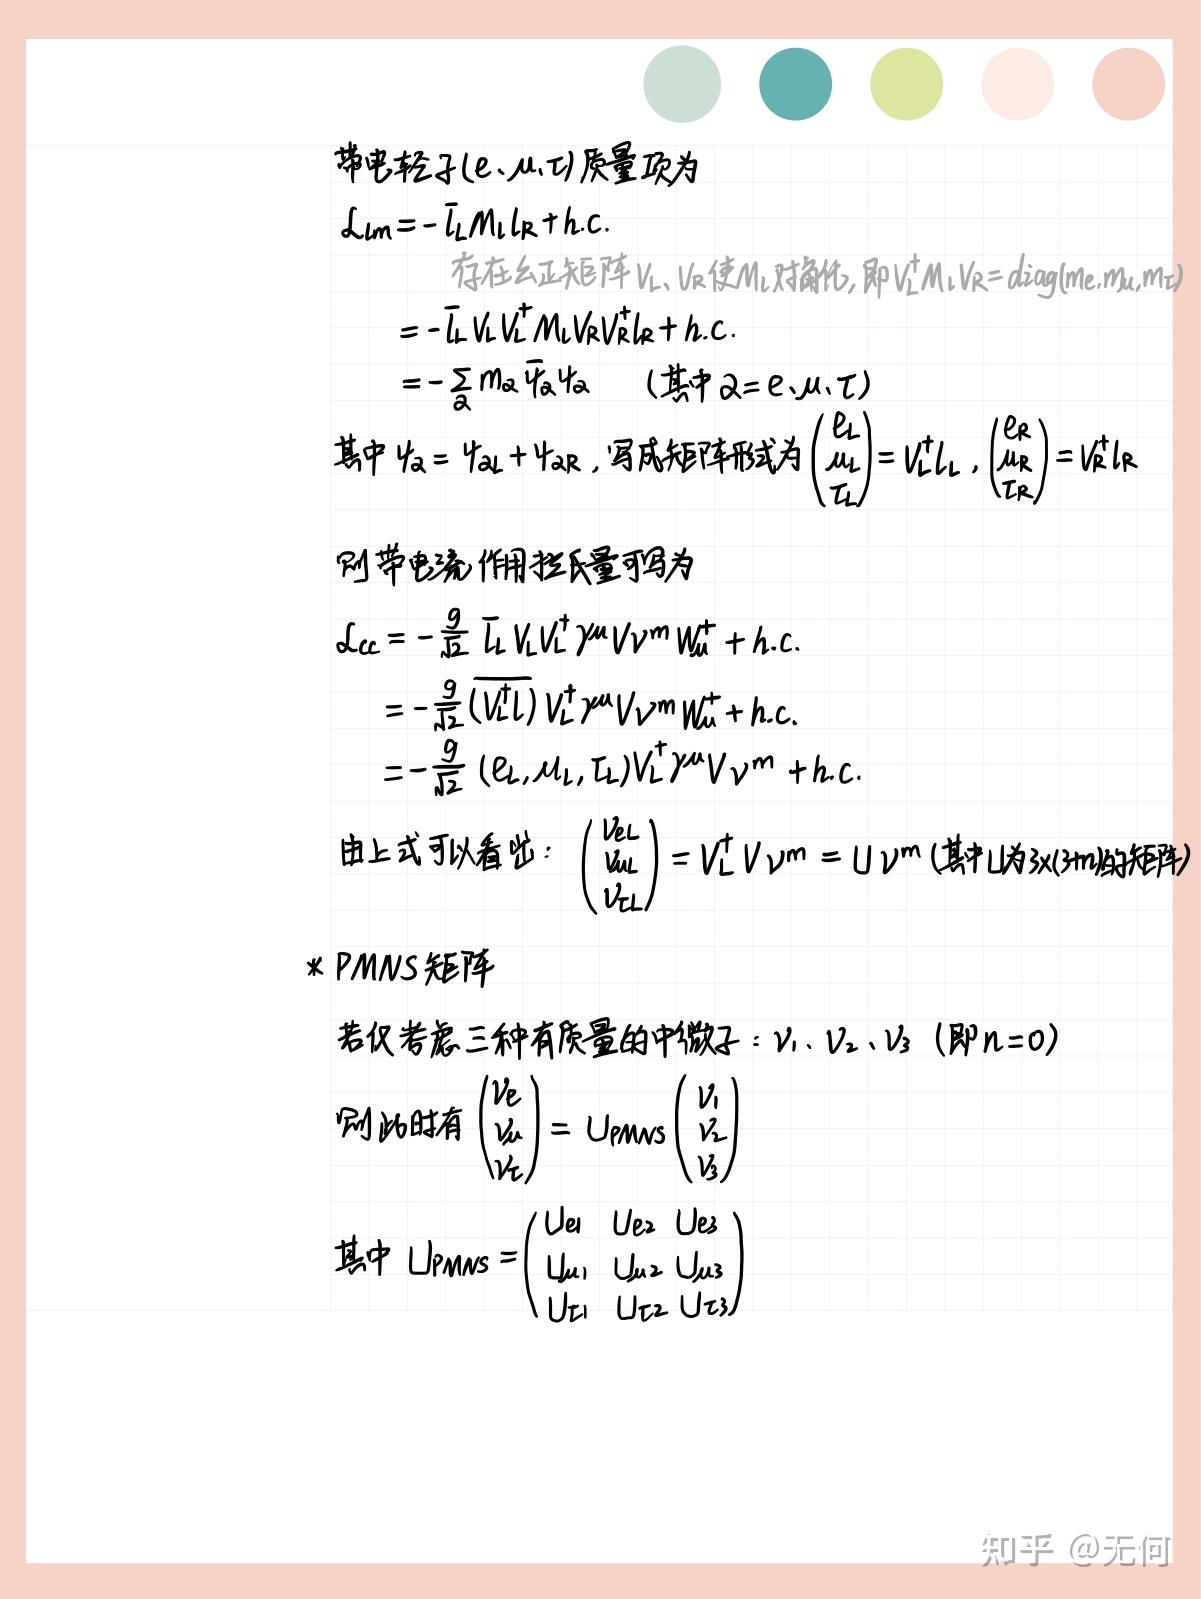 带电轻子(e、μ、τ)质量项为
ℒ_{lm} = -\bar{l}_L M_l l_R + h.c.
存在幺正矩阵 V_L、V_R 使 M_l 对角化, 即 V_L^† M_l V_R = diag(m_e, m_μ, m_τ)
= -\bar{l}_L V_L V_L^† M_l V_R V_R^† l_R + h.c.
= -∑_α m_α \bar{ψ}_α ψ_α (其中 α = e、μ、τ)
其中 ψ_α = ψ_{αL} + ψ_{αR}, 写成矩阵形式为 (e_L μ_L τ_L) = V_L^† l_L, (e_R μ_R τ_R) = V_R^† l_R
则带电流作用拉氏量可写为
ℒ_{cc} = -\frac{g}{√2} \bar{l}_L V_L V_L^† γ^μ V ν^m W_μ^+ + h.c.
= -\frac{g}{√2} (\overline{V_L^† l}) V_L^† γ^μ V ν^m W_μ^+ + h.c.
= -\frac{g}{√2} (e_L, μ_L, τ_L) V_L^† γ^μ V ν^m + h.c.
由上式可以看出: (ν_{eL} ν_{μL} ν_{τL}) = V_L^† V ν^m = U ν^m (其中U为3×(3+n)的矩阵)
* PMNS 矩阵
若仅考虑三种有质量的中微子: ν_1、ν_2、ν_3 (即 n=0)
则此时有 (ν_e ν_μ ν_τ) = U_{PMNS} (ν_1 ν_2 ν_3)
其中 U_{PMNS} = (U_{e1} U_{e2} U_{e3}
U_{μ1} U_{μ2} U_{μ3}
U_{τ1} U_{τ2} U_{τ3})
知乎 @无何